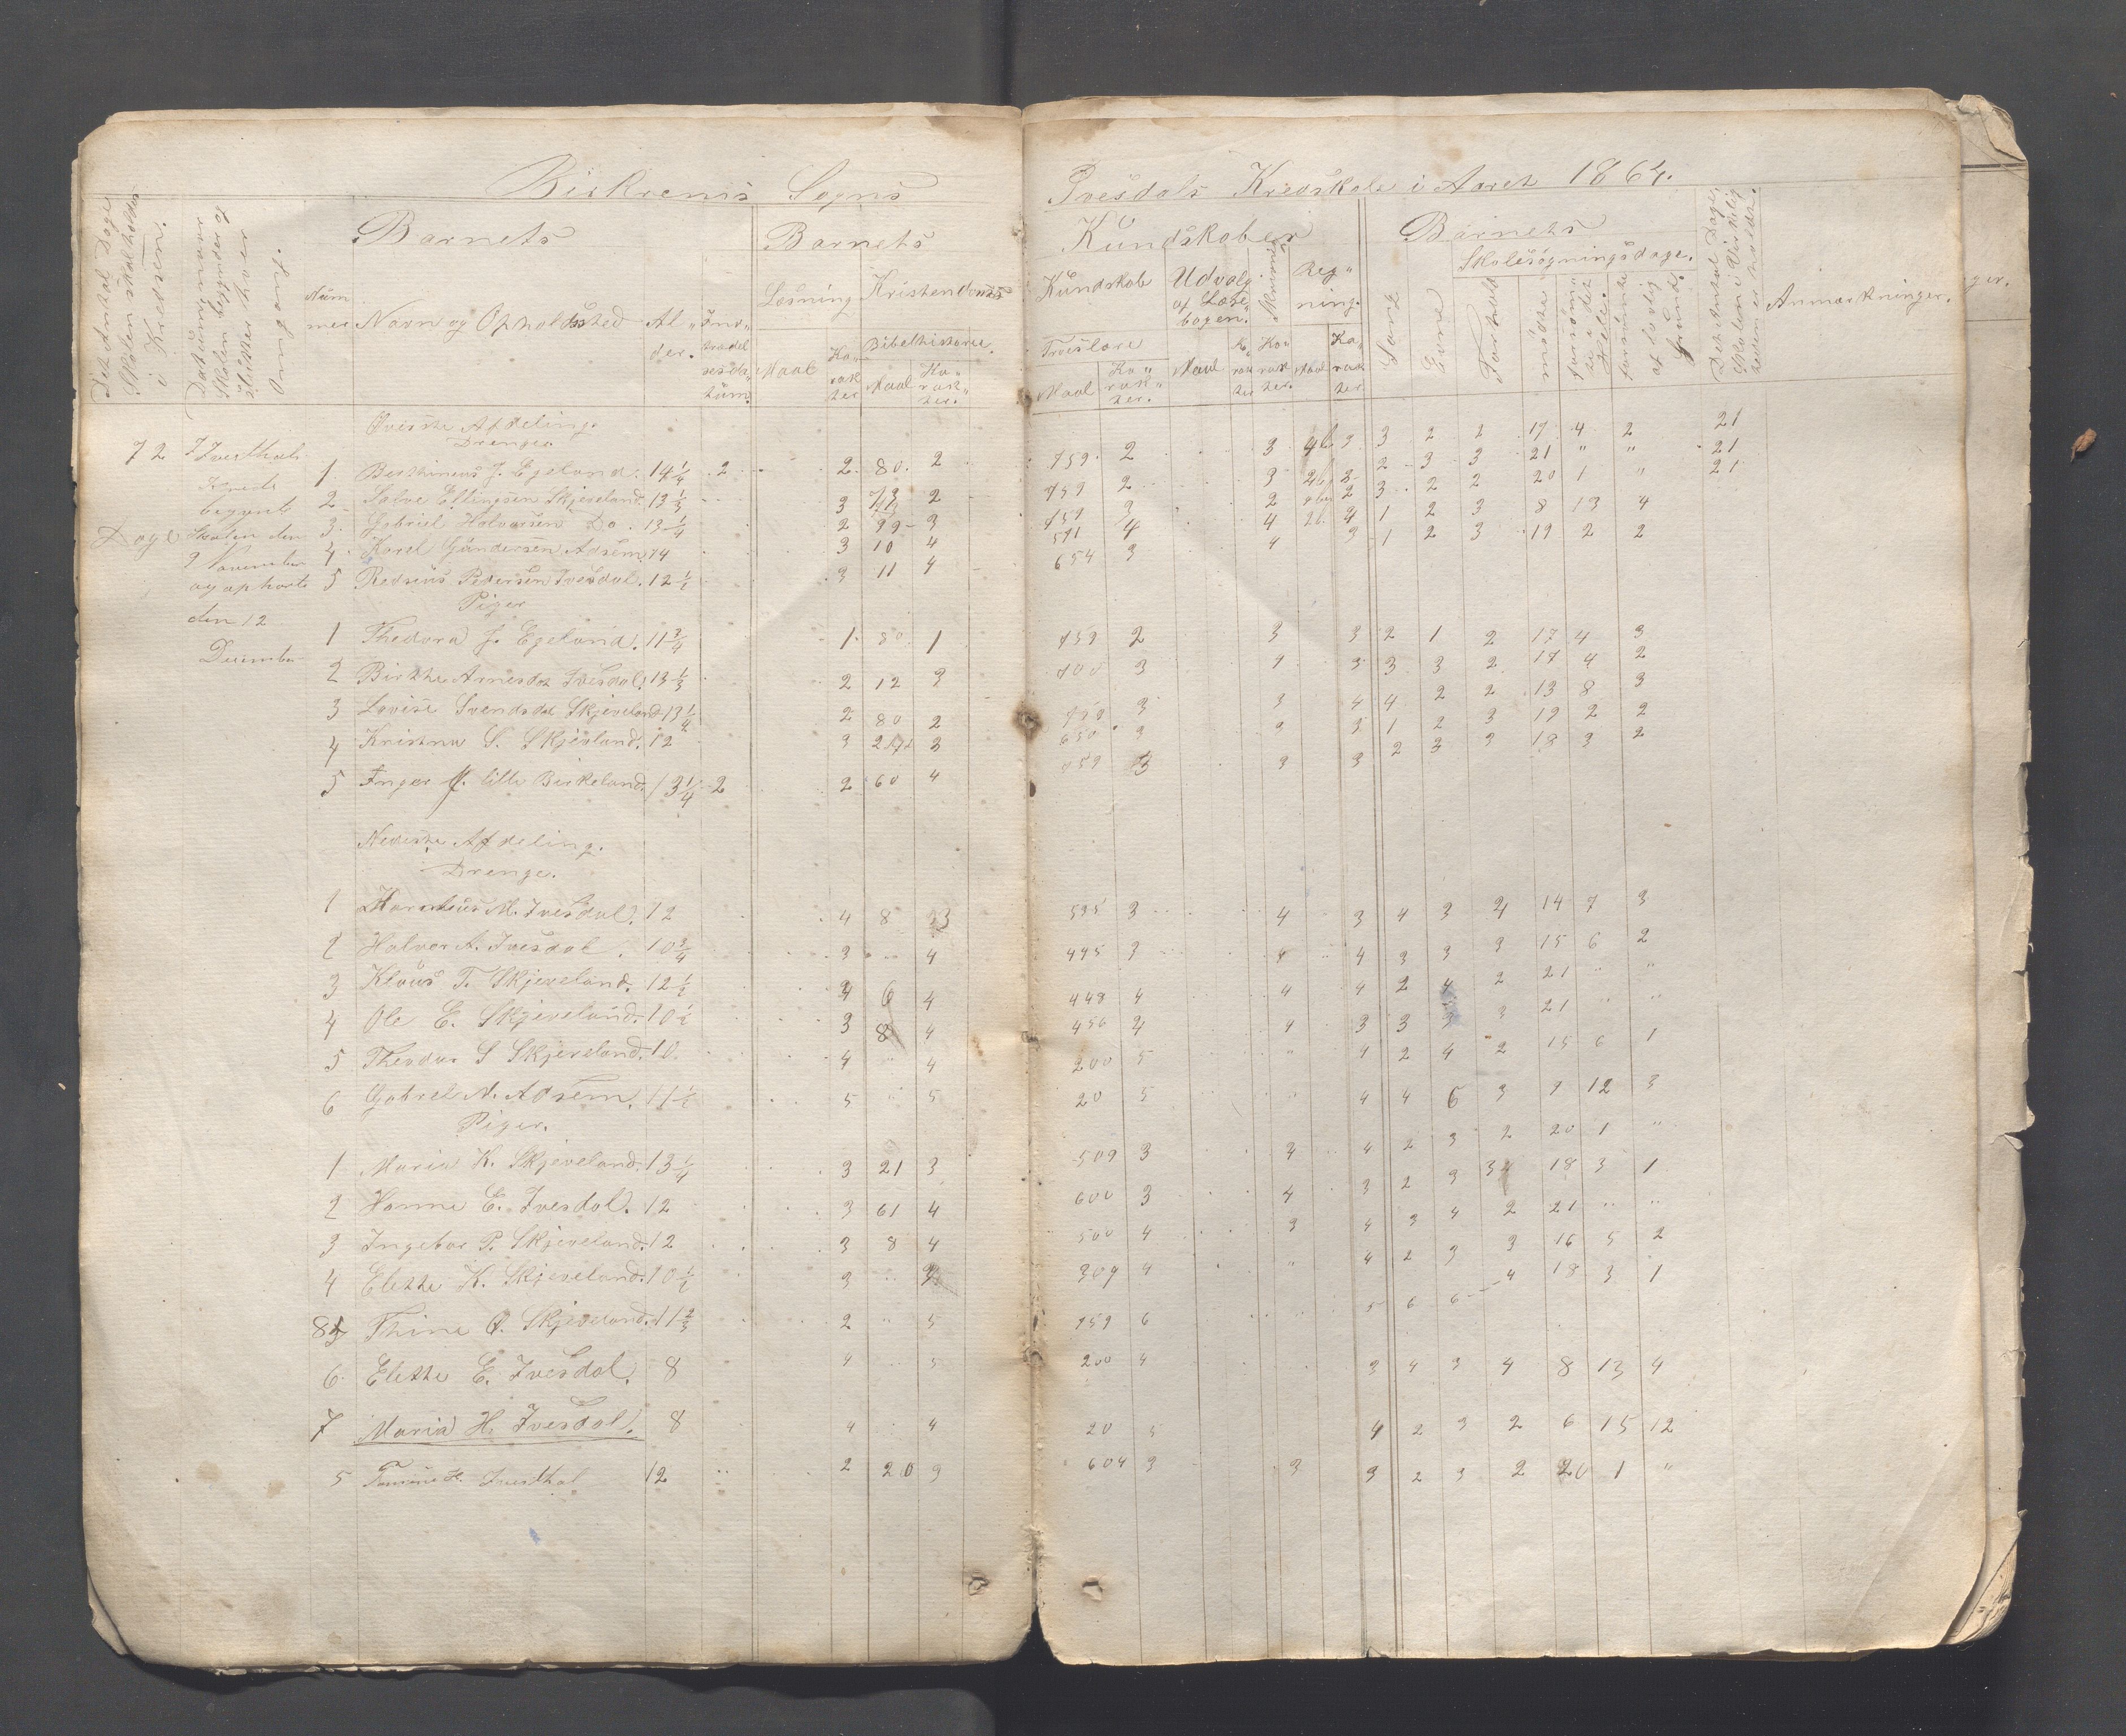 Birkrems Sogns
Ivesdals Kredsskole i Aaret 1864.
Det Antal Dage Skolen skal holdes i Kredsen.
Datum naar Skolen begynder og slutter hver Omgang.
Num
mer
Barnets
Navn og Opholdssted
Al„
der.
Ind„
trædel
sesda„
tum.
Barnets
Læsning
Maal
Ka„
rak
ter
Kristendoms
Bibelhistorie.
Maal
Ka„
rak„
ter.
Kundskaber
Kundskab
Troeslære
Maal
Ka„
rak„
ter.
Udvalg
af Læse
bogen.
Maal
Ka„
rak
ter
Skrivning
Ka„
rak
ter.
Reg„
ning.
Maal
Ka„
rak
ter.
Barnets
Evne
Forhold
Skolesøgningsdage.
mødte
forsømte i det Hele.
forsømte af lovlig Grund.
Det Antal Dage Skolen i Virkeligheden er holdt.
Anmærkninger.
Øverste Afdeling.
Drenge
72 Dage
I Ivesthals
Kreds
begynte
Skolen den
9 November
og ophørte
den 12
December
1 J. Egeland. 14 1/4 2 2 80 2 759 2 3 3 3 2 2 17 4 2 21
2 Salve Eltingsen Skjeveland. 13 1/3 3 73 2 759 2 3 3 2 3 3 21 „ „ 21
3. Gabriel Halvorsen Do. 13 1/4 2 99 3 759 3 2 2 3 2 2 20 1 „ 21
4. Karel Gundersen Adsem 14 3 10 4 591 4 4 4 1 2 3 8 13 4
5 Pedersen Ivesdal. 12 1/2 3 11 4 654 3 4 3 1 2 3 19 2 2
Piger
1 Thedora J. Egeland. 11 3/4 1 80 1 759 2 3 3 2 1 2 17 4 3
2 Birthe Arnesdat Ivesdal. 13 1/3 2 12 3 700 3 4 3 3 3 2 17 4 2
3 Lovise Svendsdat Skjeveland 13 1/2 2 80 2 759 3 3 4 4 2 2 13 8 3
4 Kristna S. Skjeveland. 12 3 3 650 3 3 3 1 2 3 19 2 2
5 Inger lille Birkeland. 13 1/4 2 2 60 4 759 3 3 3 2 3 3 18 3 2
Nederste Afdeling.
Drenge.
1 M. Ivesdal. 12 4 8 3 595 3 4 3 4 3 4 14 7 3
2 Halvor A. Ivesdal. 10 3/4 3 4 495 3 4 4 3 3 3 15 6 2
3 Klaus T. Skjeveland. 12 1/2 4 6 4 448 4 4 4 2 4 2 21 „ „
4 Ole E. Skjeveland. 10 1/2 3 8 4 456 4 4 3 3 3 3 21 „ „
5 Theodor S Skjeveland. 10. 4 „ 4 200 5 „ 4 2 4 2 15 6 1
6 Gabriel N. Adsem. 11 1/2 5 „ 5 20 5 „ 4 4 6 3 9 12 3
Piger.
1 Maria K. Skjeveland. 13 1/4 3 21 3 509 3 4 4 2 3 2 20 1 „
2 Hanne E. Ivesdal. 12 3 61 4 600 3 4 3 2 3 34 18 3 1
3 Ingebor P. Skjeveland. 12 3 8 4 500 4 3 4 3 4 2 21 „ „
4 Elette K. Skjeveland. 10 1/2 3 309 4 „ 4 2 3 3 16 5 2
Thine O. Skjeveland. 11 2/3 2 „ 5 759 6 5 6 6 4 18 3 1
6. Elette E. Ivesdal. 8 4 5 200 4 3 4 3 4 8 13 4
7 Maria H. Ivesdal. 8 4 4 20 5 4 2 3 2 6 15 12
5 H. Ivesthal 12 „ 2 20 3 604 3 3 3 2 3 2 20 1 „